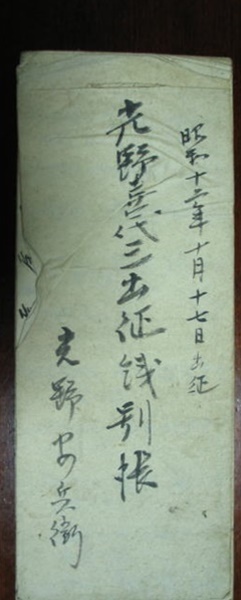 昭和十二年十月十七日出征
光野喜代三出征餞別帳
光野安兵衛